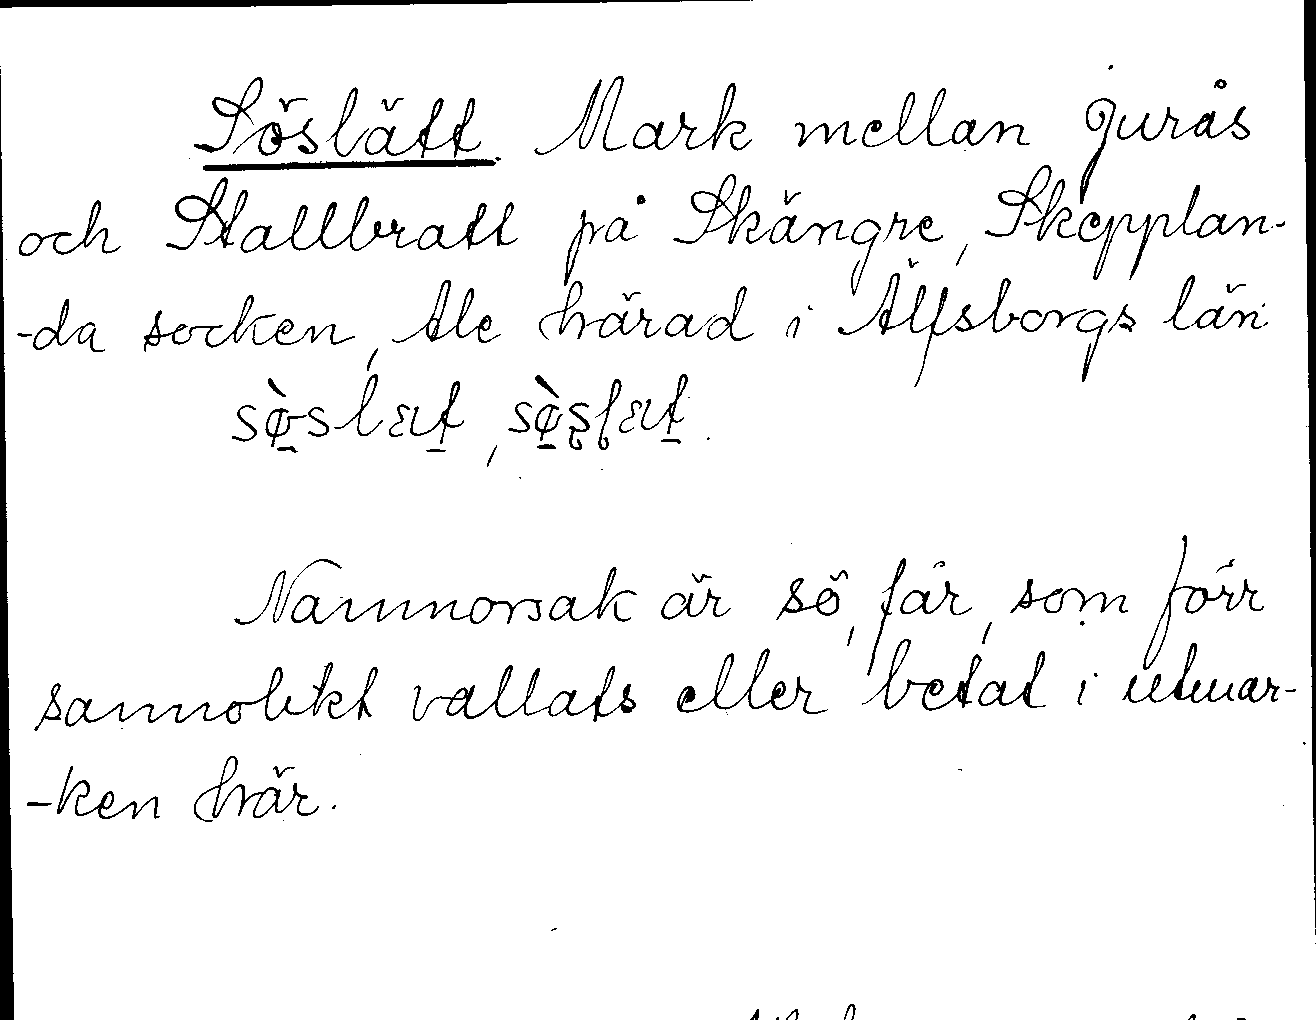 Söslätt. Mark mellan Jurås
och Stallbratt på Skängre, Skepplan-
-da socken, Ale härad i Älfsborgs län
sø̀slæt, sø̀ʂɭæt.
Namnorsak är sö, får, som förr
sannolikt vallats eller betat i utmar-
-ken här.